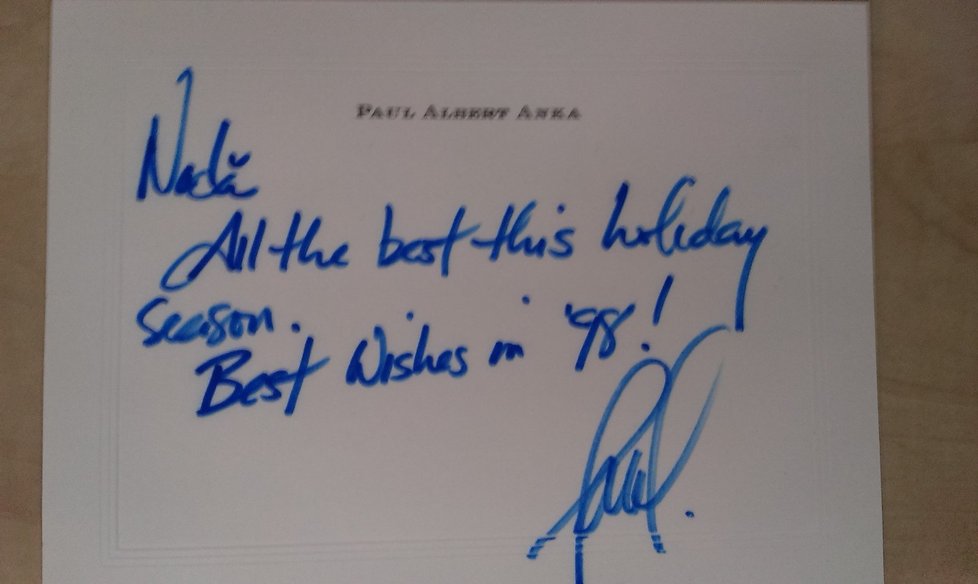 PAUL ALBERT ANKA
Nadă
All the best this holiday
season.
Best Wishes in '98!
Paul.